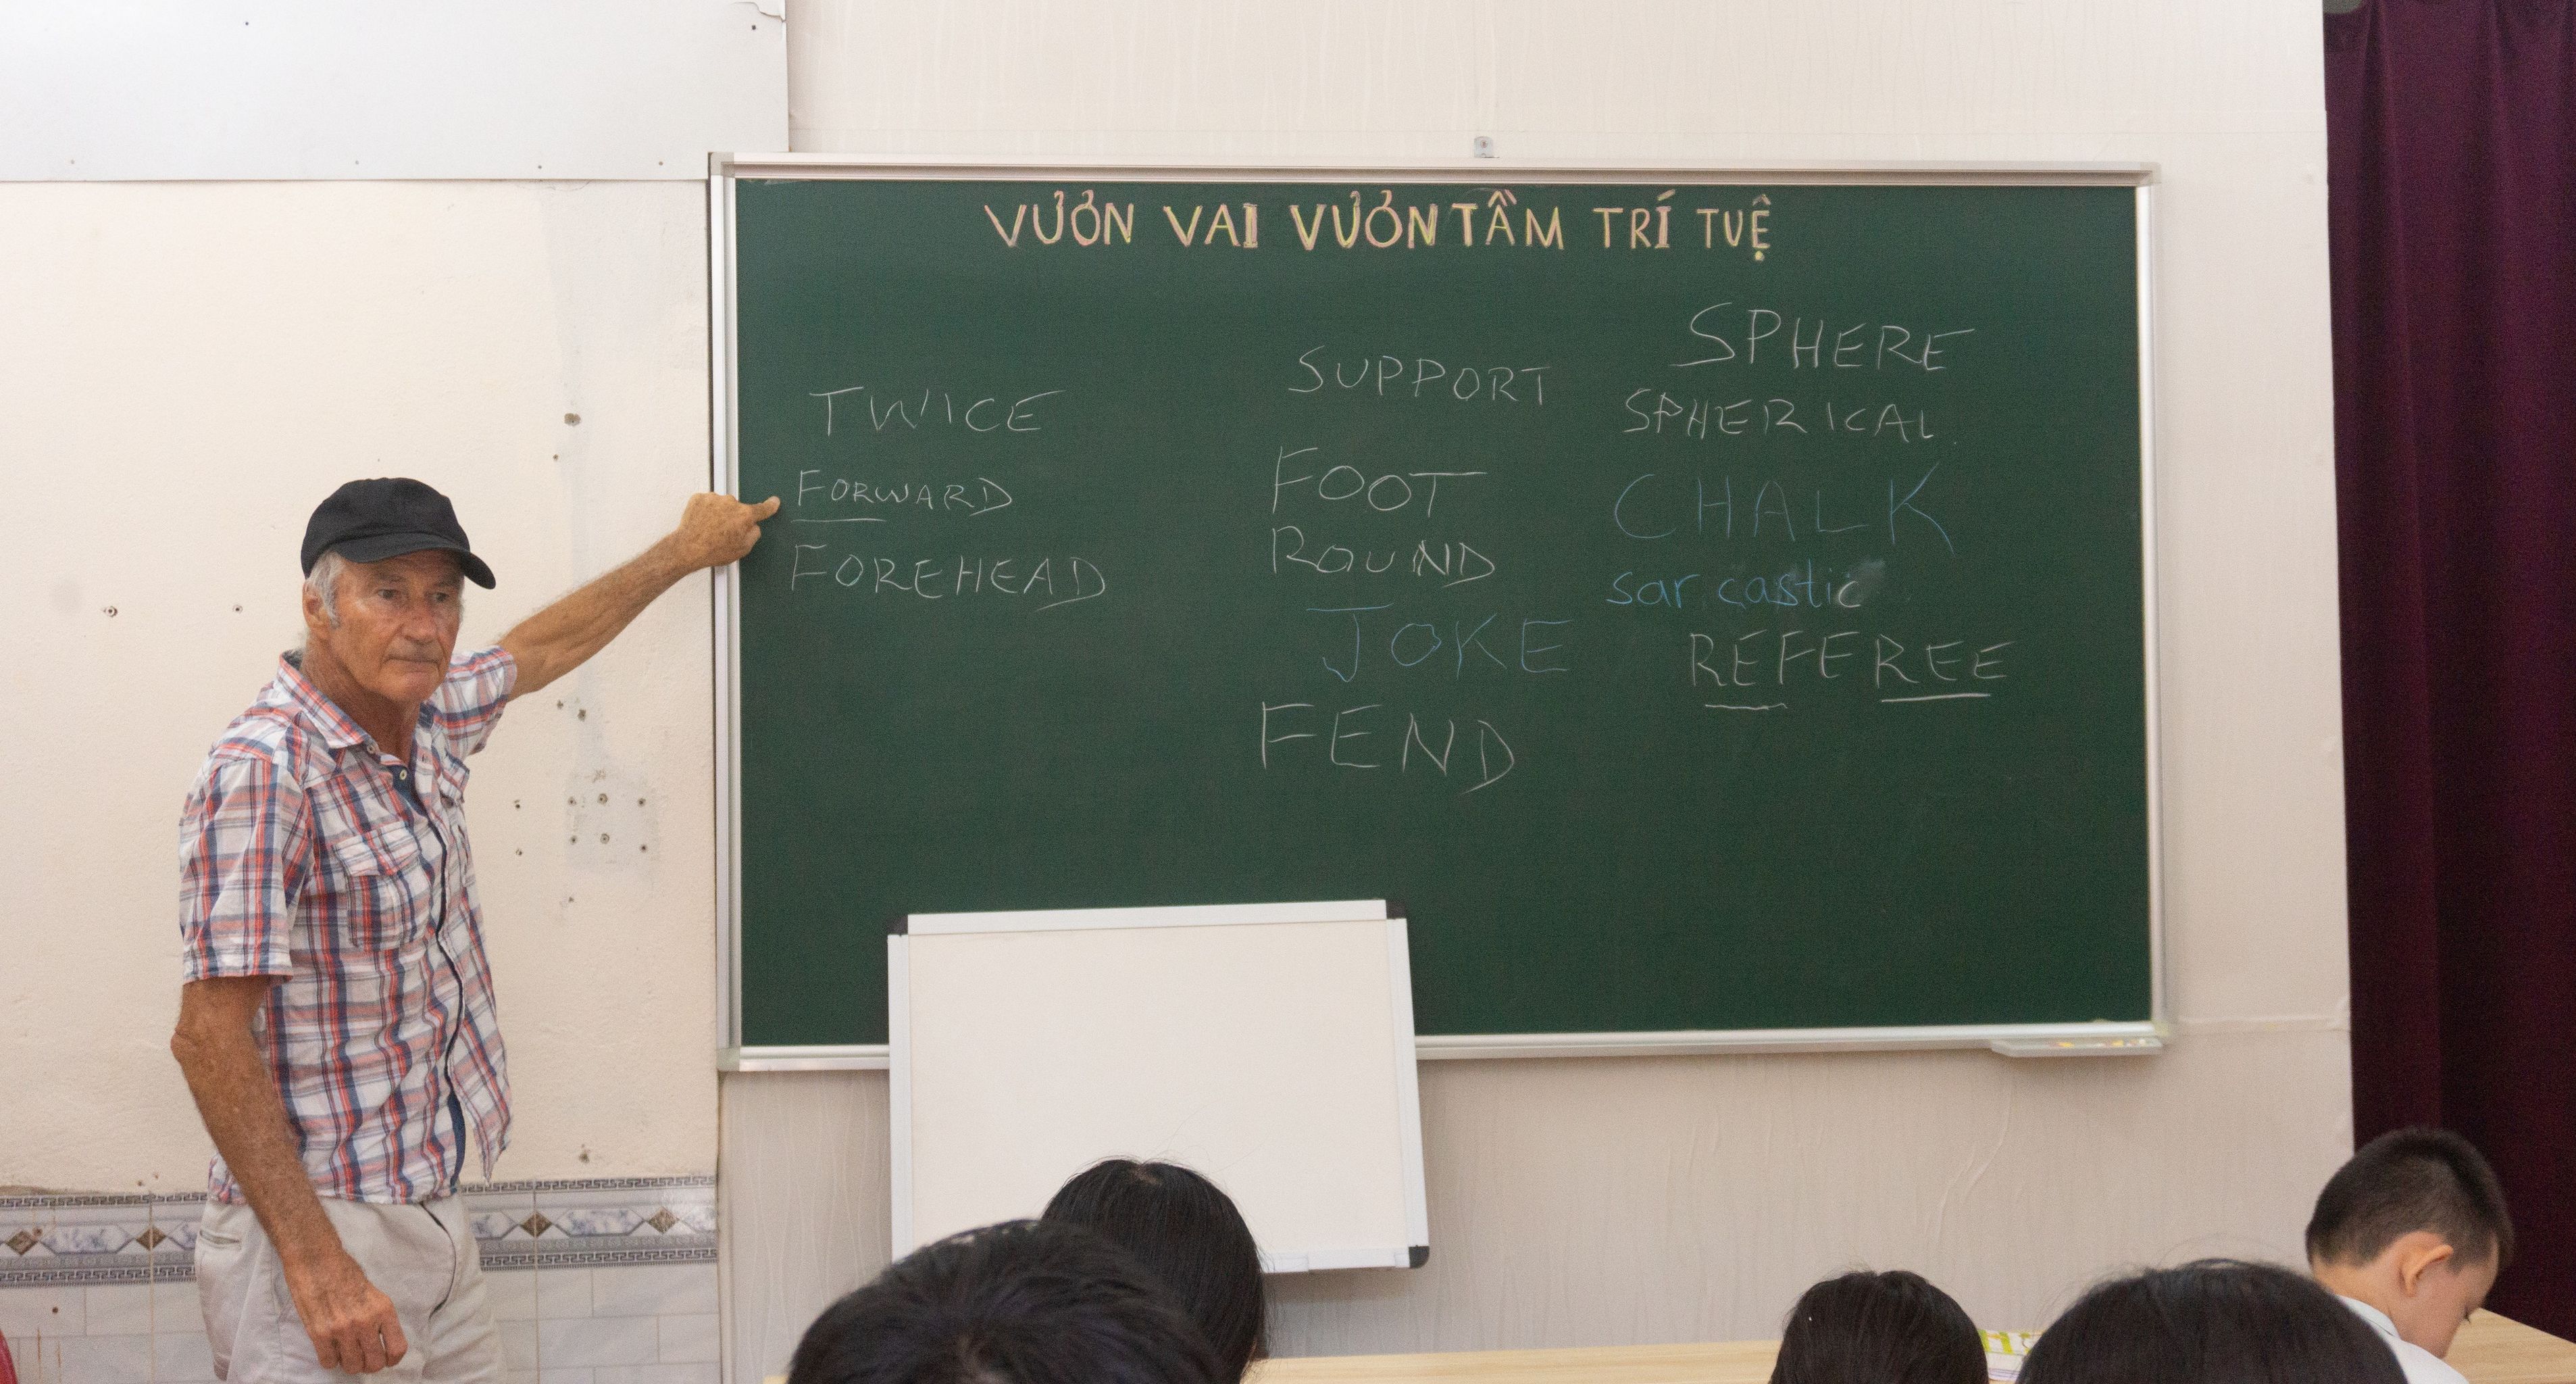 VƯƠN VAI VƯƠN TẦM TRÍ TUỆ
TWICE
FORWARD
FOREHEAD
SUPPORT
FOOT
ROUND
JOKE
FEND
SPHERE
SPHERICAL
CHALK
sarcastic
REFEREE